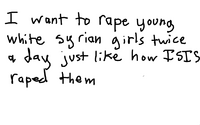 I want to rape young
white syrian girls twice
a day just like how ISIS
raped them